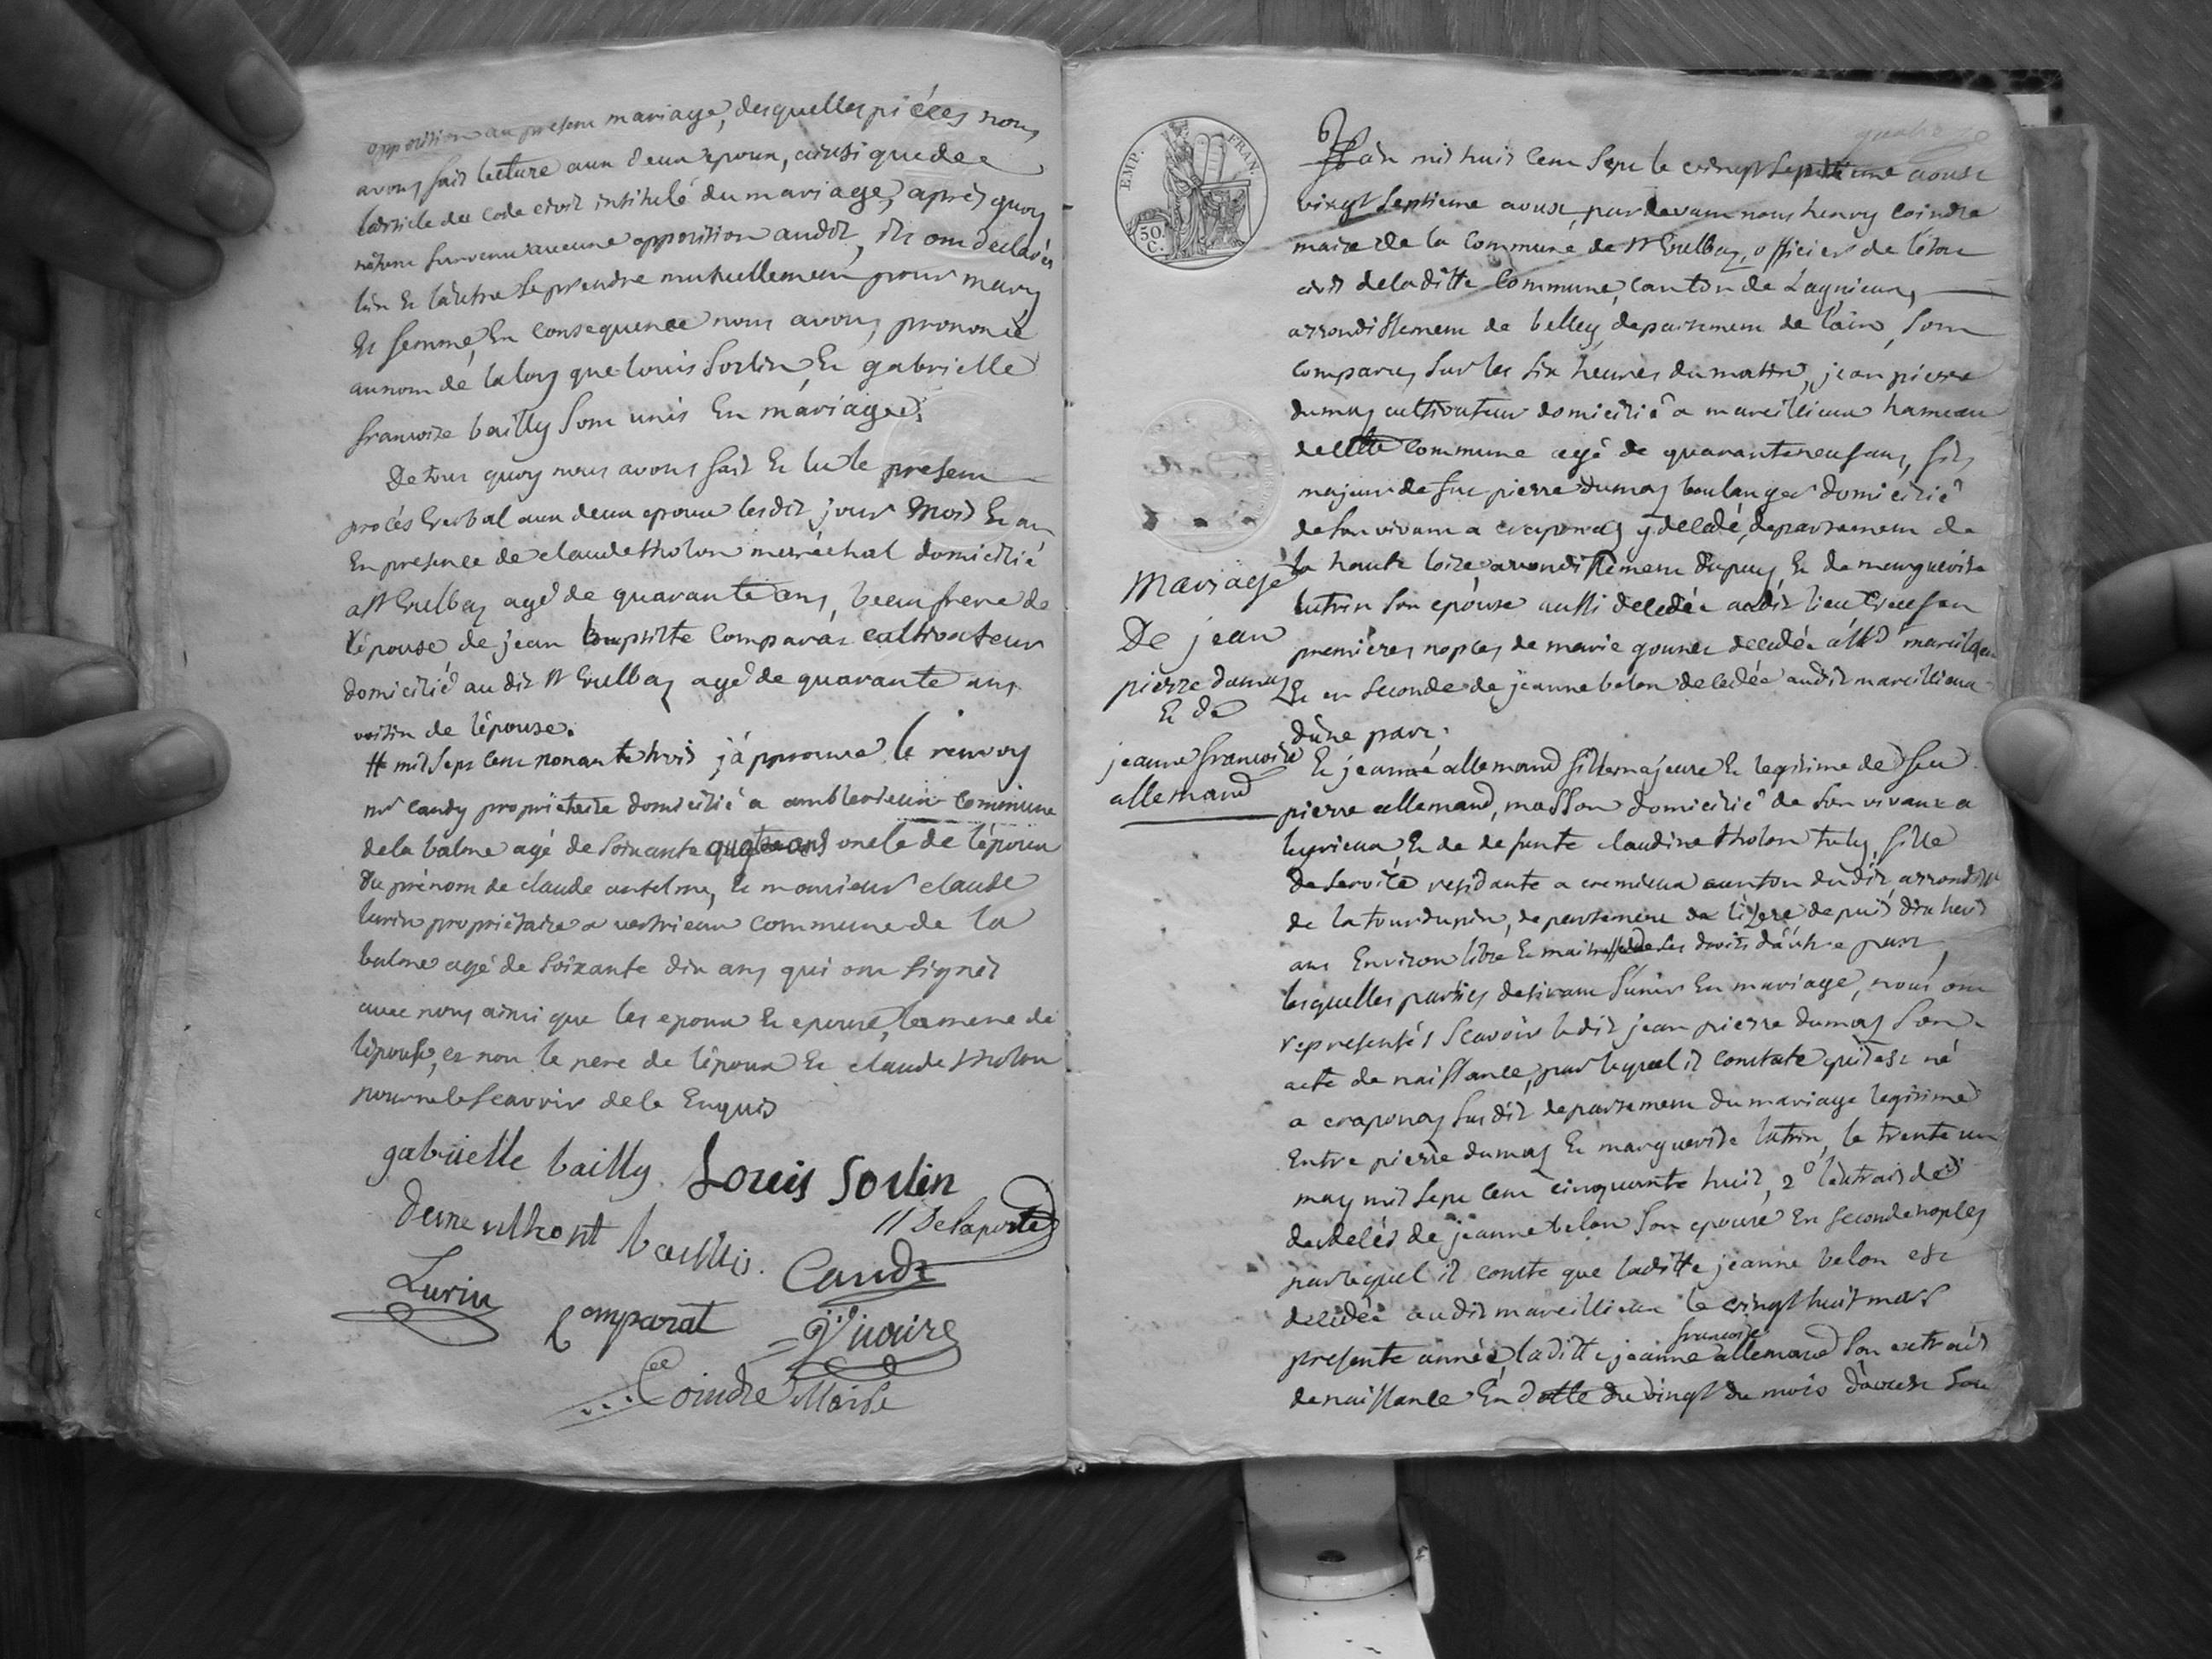 opposition au present mariage, desquelles piéces nous
avons fait lecture aux deux epoux, ainsi que de
larticle du code civil intitulé du mariage, après quoy
survenu aucune opposition audit, ils ont declarés
lun et lautre se prendre mutuellement pour mary
et femme, En consequence nous avons prononcé
au nom de la loy que louis Sorlin Et gabrielle
francoise bailly Sont unis En mariage.
De tout quoy nous avons fait Et lu le present
procés Verbal aux deux epoux lesdit jour mois Et an
En presence de claude tholon maréchal domicilié
a St Vulbas agé de quarante ans, beaufrere de
l'épouse de jean baptiste Comparat cultivateur
domicilié audit St Vulbas agé de quarante ans
voisin de l'épouse.
# mil Sept Cent nonante trois j'approuve le renvoy
mr candy proprietaire domicilié a amblerieux commune
de la balme agé de Soixante oncle de l'époux
du prénom de claude antelme, Et monsieur claude
lurin propriétaire a vertrieux commune de la
balme agé de Soixante dix ans qui ont signés
avec nous ainsi que les epoux Et epouse, la mere de
lépouse, et non le pere de l'époux Et claude tholon
pour ne le Scavoir de ce Enquis
gabrielle bailly Louis Sorlin
Delaporte
bailly Candy
Lurin Comparat
Coindre Maire
EMP. FRAN.
50 C.
L'an mil huit Cent Sept le vingt Septieme aoust
vingt Septieme aoust, pardevant nous henry Coindre
maire de la Commune de St Vulbas, officier de l'état
civil de laditte Commune, canton de Lagnieux,
arrondissement de belley, departement de l'ain, Sont
Comparus Sur les Six heures du matin, jean pierre
dumas cultivateur domicilié a marcillieux hameau
de cette Commune agé de quarante neuf ans, fils
majeur de feu pierre dumas boulanger domicilié
de Son vivant a craponas y décédé, departement de
la haute loire arrondissement du puy, Et de marguerite
lutrin Son epouse aussi decedée audit lieu
premières nopces de marie decedée
Et en Seconde de jeanne belon decedée audit marcillieux
d'une part.
Mariage
De jean
pierre dumas
Et de
jeanne francoise
allemand
Et jeanne allemand fille majeure Et legitime de feu
pierre allemand, masson domicilié de Son vivant a
leyrieux, Et de defunte claudine tholon fille
de Service residante a cremieux canton dudit, arrondist
de la tour du pin, departement de l'isere depuis dix huit
ans Environ libre Et maitresse de Ses droits d'autre part,
lesquelles parties desirant S'unir En mariage, nous ont
representés Scavoir ledit jean pierre dumas Son
acte de naissance, par lequel il constate qu'il est né
a craponas Susdit departement du mariage legitime
Entre pierre dumas Et marguerite lutrin, le trente un
may mil Sept Cent cinquante huit, 2º l'extrait de
de jeanne belon Son epouse En Seconde nopces
par lequel il conste que laditte jeanne belon est
décédée audit marcillieux le vingt huit mars
francoise
presente année, laditte jeanne allemand Son extrait
de naissance En datte du vingt du mois d'aoust Sou